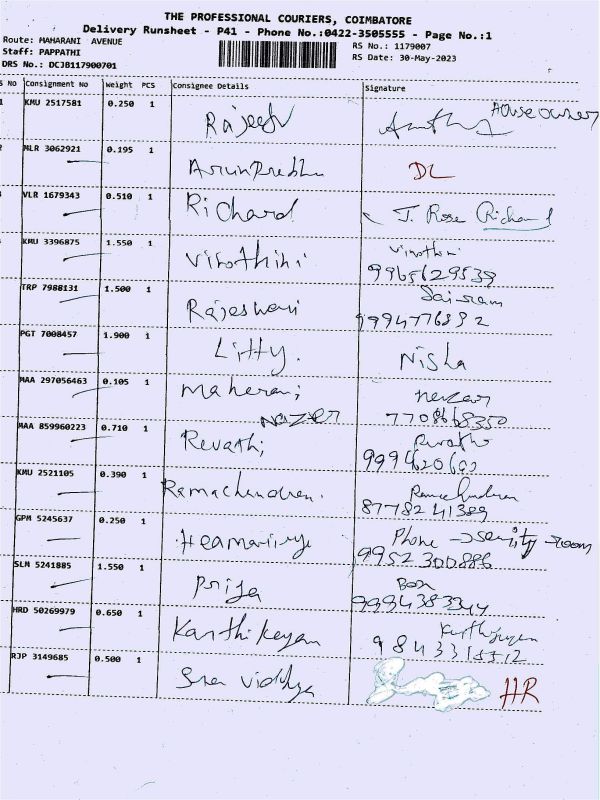 THE PROFESSIONAL COURIERS, COIMBATORE
Delivery Runsheet - P41 - Phone No.:0422-3505555 - Page No.:1
Route: MAHARANI AVENUE
RS No.: 1179007
Staff: PAPPATHI
RS Date: 30-May-2023
DRS No.: DCJB117900701
S No Consignment No Weight PCS Consignee Details Signature
1 KMU 2517581 0.250 1 Rajesh House owner
2 MLR 3062921 0.195 1 ArunPrabhu DL
VLR 1679343 0.510 1 Richard J. Rose Richard
KMU 3396875 1.550 1 Virothini Virothini
9965629539
TRP 7988131 1.500 1 Rajeswari Sairam
9994776892
PGT 7008457 1.900 1 Litty. Nisha
MAA 297056463 0.105 1 Maherani
Nazer
7708668350
MAA 859960223 0.710 1 Revathi Revathi
KMU 2521105 0.390 1 Ramachandran. Ramachandran
8778241389
GPM 5245637 0.250 1 Phone → security room
9952300886
SLM 5241885 1.550 1 Priya
9994383344
HRD 50269979 0.650 1 Karthikeyan Karthikeyan
RJP 3149685 0.500 1 Sree Viddhya HR